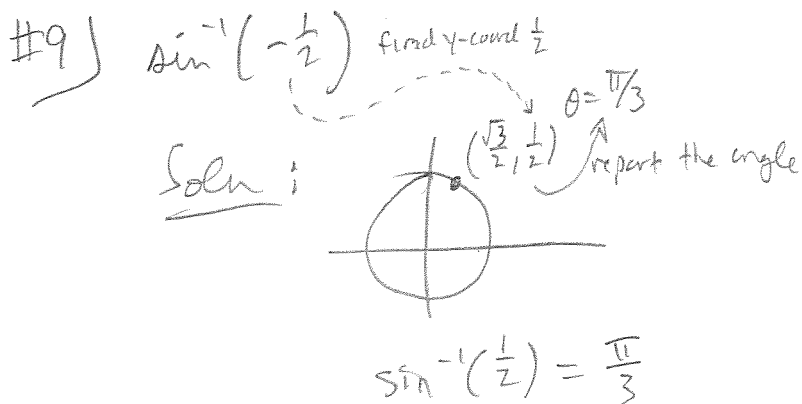 #9) sin⁻¹(-1/2) find y-coord 1/2
θ = π/3
(√3/2, 1/2)
report the angle
Soln :
sin⁻¹(1/2) = π/3